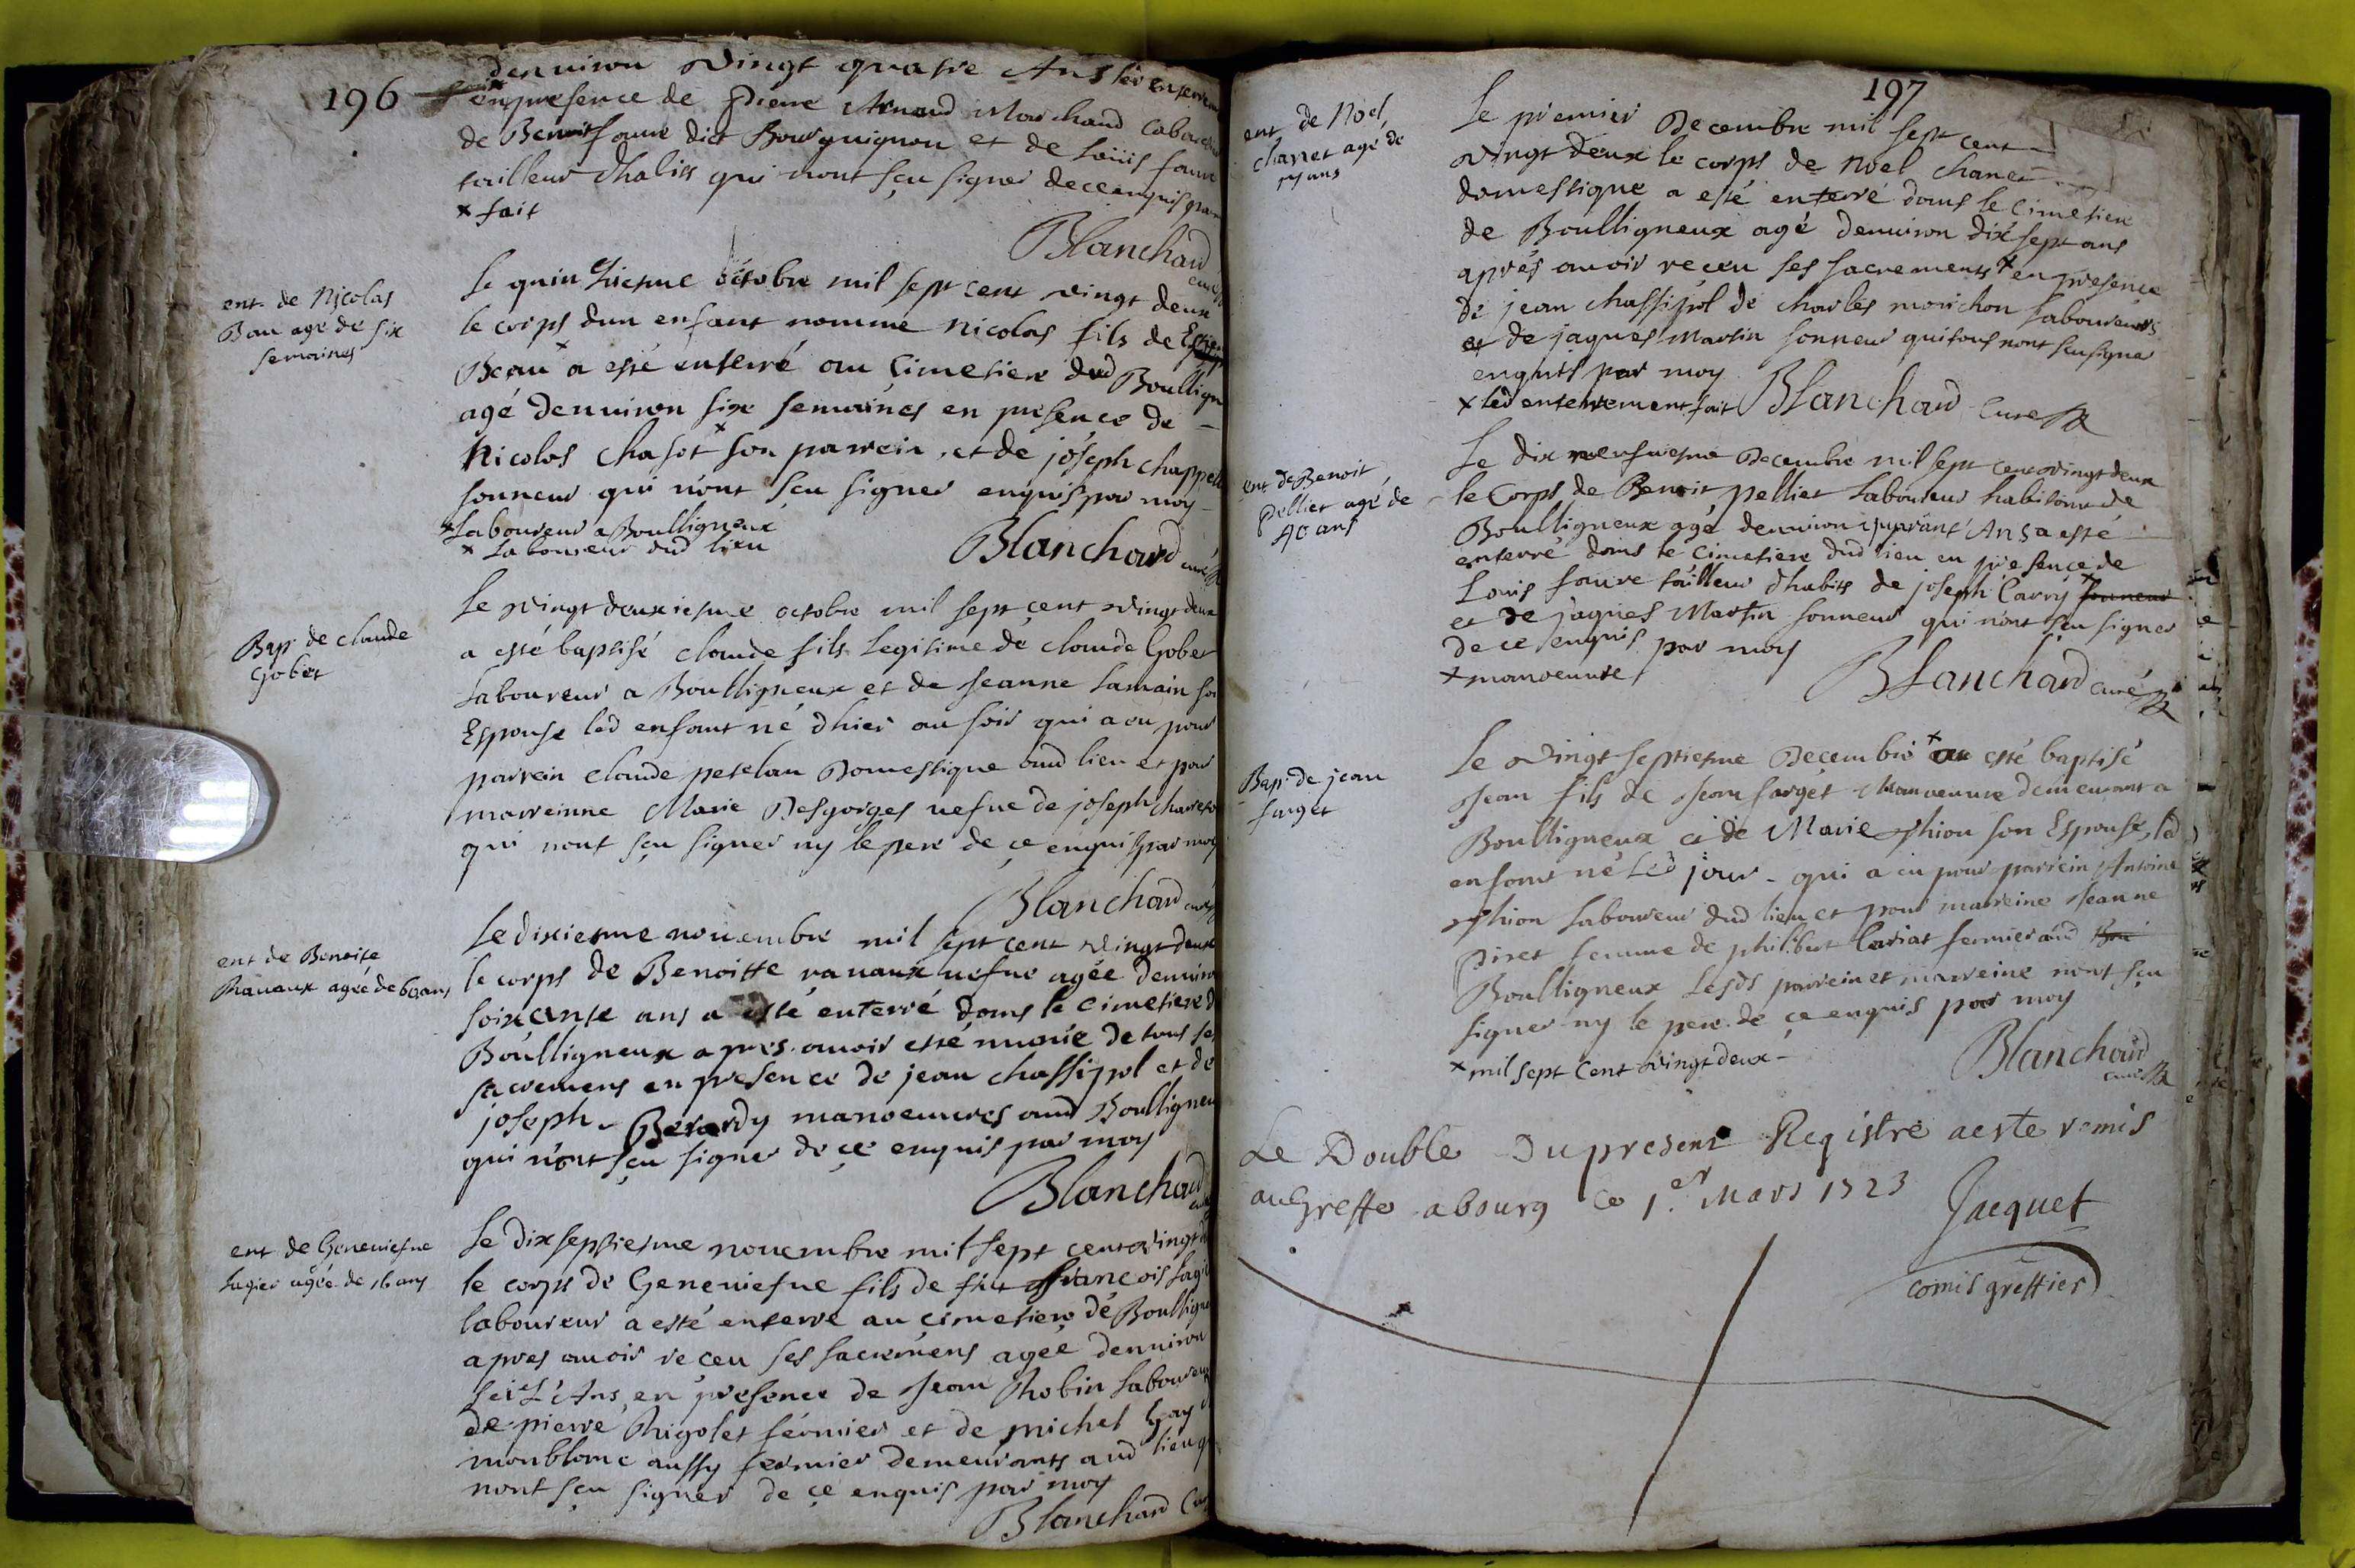 196
denuiron vingt quatre Ans led enterrem
en presence de Pierre Arnaud Marchand Cabar
de Benoit faure dict Bourguignon et de Loüis faure
tailleur dhabits qui n'ont sçu signer de ce enquis par
x fait
Blanchard curé
ent. de Nicolas
Bau agé de six
semaines
Le quinziesme octobre mil sept cent vingt deux
le corps dun enfant nomme Nicolas fils de
Beau x a esté enterré au Cimetiere dud Boullign
agé denuiron six semaines en presence de
Nicolas Chasot x son parrein, et de joseph Chappel
sonneur qui n'ont sçu signer enquis par moy
x Laboureur a Boulligneux
x Laboureur dud lieu
Blanchard curé
Bap. de claude
Gobet
Le vingt deuxiesme octobre mil sept cent vingt deux
a esté baptisé claude fils legitime de claude Gobet
Laboureur a Boulligneux et de Jeanne Lamain son
Espouse led enfant né dhier au soir qui a eu pour
parrein claude petelan Domestique aud lieu et pour
marreinne Marie Desgorges uefue de joseph
qui nont sçu signer ny le pere de ce enquis par moy
Blanchard curé
ent de Benoite
Rauaux agée de 60 ans
Le dixiesme nouembre mil sept cent vingt deux
le corps de Benoitte rauaux uefue agée denuiron
soixante ans a esté enterré dans le Cimetiere d
Boulligneux apres auoir esté munie de tous ses
sacremens en presence de jean chassipol et de
joseph Berardy manoeuures aud Boulligneu
qui n'ont sçu signer de ce enquis par moy
Blanchard
ent de Geneuiefue
Lagier agée de 16 ans
Le dix septiesme nouembre mil sept cent vingt d
le corps de Geneuiefue fils de feu francois Lagi
laboureur a esté enterré au cimetiere de Boulligne
apres auoir receu ses sacremens agée denuiron
seize Ans, en presence de Jean Robin Laboureur
de pierre Rigolet fermier et de michel Gay
monblanc aussy fermier demeurants aud lieu q
nont sçu signer de ce enquis par moy
Blanchard Cur
197
ent de Noel
chanet agé de
17 ans
Le premier Decembre mil sept cent
vingt deux le corps de Noel chanet
domestique a esté enterré dans le Cimetiere
de Boulligneux agé denuiron dix sept ans
aprés auoir receu ses sacrements x en presence
de jean chassipol de charles morichon Laboureurs
et de jaques Martin sonneur qui tous nont sçu signer
enquis par moy
x led enterrement fait Blanchard Curé
ent de Benoit
Pellier agé de
40 ans
Le dix neufuiesme Decembre mil sept cent vingt deux
le Corps de Benoit pellier Laboureur habitant de
Boulligneux agé denuiron quarant Ans a esté
enterré dans le Cimetiere dud lieu en presence de
Louis faure tailleur dhabits de joseph Carry x sonneur
et de jaques Martin sonneur qui n'ont sçu signer
de ce enquis par moy
x manoeuure
Blanchard curé
Bap. de jean
farget
Le vingt septiesme Decembre x a esté baptisé
Jean fils de Jean farget Manoeuure demeurant a
Boulligneux et de Marie thion son Espouse, led
enfant né led jour - qui a eu pour parrein Antoine
thion Laboureur dud lieu et pour marreine Jeanne
Piret femme de philibert Cariat fermier aud
Boulligneux Lesds parrein et marreine nont sçu
signer ny le pere de ce enquis par moy
x mil sept Cent vingt deux -
Blanchard
curé
Le Double Du present Registre a este remis
au Greffe a bourg ce 1.er Mars 1723
Jacquet
comis greffier